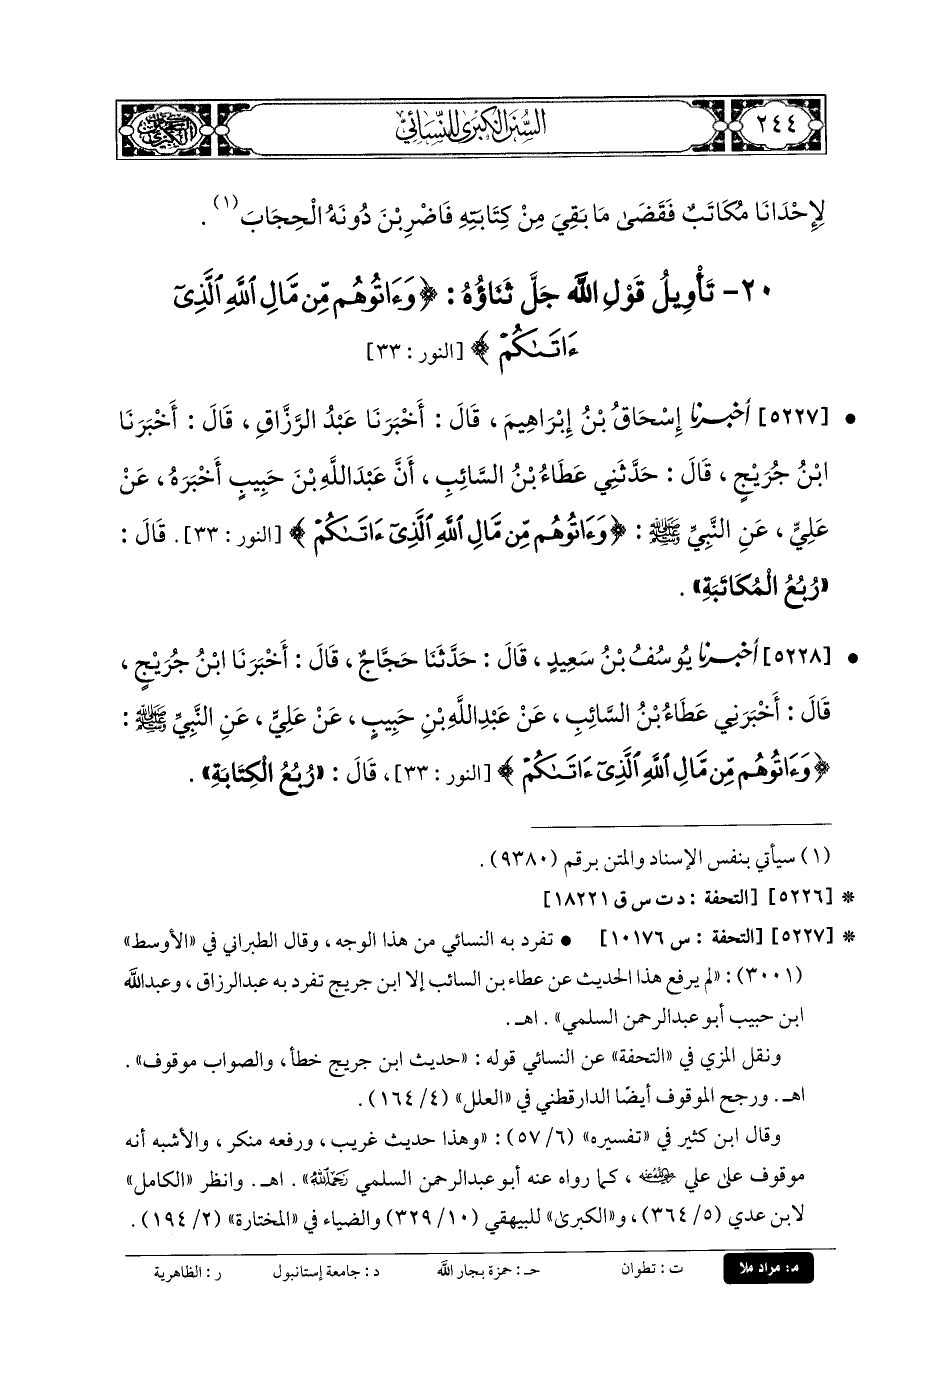 ٢٤٤
السُّنَنُ الْكُبْرَى لِلنَّسَائِيِّ
لِإِحْدَانَا مُكَاتَبٌ فَقَضَىٰ مَا بَقِيَ مِنْ كِتَابَتِهِ فَاضْرِبْنَ دُونَهُ الْحِجَابَ (١) .
٢٠- تَأْوِيلُ قَوْلِ اللَّهِ جَلَّ ثَنَاؤُهُ : ﴿ وَءَاتُوهُم مِّن مَّالِ ٱللَّهِ ٱلَّذِىٓ
ءَاتَىٰكُمْ ﴾ [النور : ٣٣]
• [٥٢٢٧] أَخْبَرَنَا إِسْحَاقُ بْنُ إِبْرَاهِيمَ ، قَالَ : أَخْبَرَنَا عَبْدُ الرَّزَّاقِ ، قَالَ : أَخْبَرَنَا
ابْنُ جُرَيْجٍ ، قَالَ : حَدَّثَنِي عَطَاءُ بْنُ السَّائِبِ ، أَنَّ عَبْدَاللَّهِ بْنَ حَبِيبٍ أَخْبَرَهُ ، عَنْ
عَلِيٍّ ، عَنِ النَّبِيِّ ﷺ : ﴿ وَءَاتُوهُم مِّن مَّالِ ٱللَّهِ ٱلَّذِىٓ ءَاتَىٰكُمْ ﴾ [النور : ٣٣]. قَالَ :
«رُبُعُ الْمُكَاتَبَةِ» .
• [٥٢٢٨] أَخْبَرَنَا يُوسُفُ بْنُ سَعِيدٍ ، قَالَ : حَدَّثَنَا حَجَّاجٌ ، قَالَ : أَخْبَرَنَا ابْنُ جُرَيْجٍ ،
قَالَ : أَخْبَرَنِي عَطَاءُ بْنُ السَّائِبِ ، عَنْ عَبْدِاللَّهِ بْنِ حَبِيبٍ ، عَنْ عَلِيٍّ ، عَنِ النَّبِيِّ ﷺ :
﴿ وَءَاتُوهُم مِّن مَّالِ ٱللَّهِ ٱلَّذِىٓ ءَاتَىٰكُمْ ﴾ [النور : ٣٣]، قَالَ : «رُبُعُ الْكِتَابَةِ» .
(١) سيأتي بنفس الإسناد والمتن برقم (٩٣٨٠) .
* [٥٢٢٦] [التحفة : د ت س ق ١٨٢٢١]
* [٥٢٢٧] [التحفة : س ١٠١٧٦] • تفرد به النسائي من هذا الوجه ، وقال الطبراني في «الأوسط»
(٣٠٠١) : «لم يرفع هذا الحديث عن عطاء بن السائب إلا ابن جريج تفرد به عبدالرزاق ، وعبدالله
ابن حبيب أبو عبدالرحمن السلمي» . اهـ .
ونقل المزي في «التحفة» عن النسائي قوله : «حديث ابن جريج خطأ ، والصواب موقوف» .
اهـ . ورجح الموقوف أيضًا الدارقطني في «العلل» (٤/ ١٦٤) .
وقال ابن كثير في «تفسيره» (٦/ ٥٧) : «وهذا حديث غريب ، ورفعه منكر ، والأشبه أنه
موقوف على علي رضي الله عنه ، كما رواه عنه أبو عبدالرحمن السلمي رحمه الله» . اهـ . وانظر «الكامل»
لابن عدي (٥/ ٣٦٤)، و«الكبرى» للبيهقي (١٠/ ٣٢٩) والضياء في «المختارة» (٢/ ١٩٤) .
م: مراد ملا ت : تطوان حـ : حمزة بجار الله د : جامعة إستانبول ر : الظاهرية